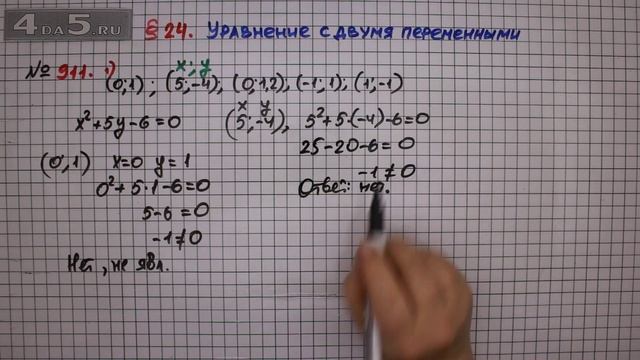 4DA5.RU
§ 24. Уравнение с двумя переменными
№ 911. 1) x; y
(0;1); (5;-4); (0;1,2); (-1;1); (1;-1)
x²+5y-6=0
(0;1) x=0 y=1
0²+5·1-6=0
5-6=0
-1≠0
Нет, не явл.
x y
(5;-4), 5²+5·(-4)-6=0
25-20-6=0
-1≠0
Ответ: нет.